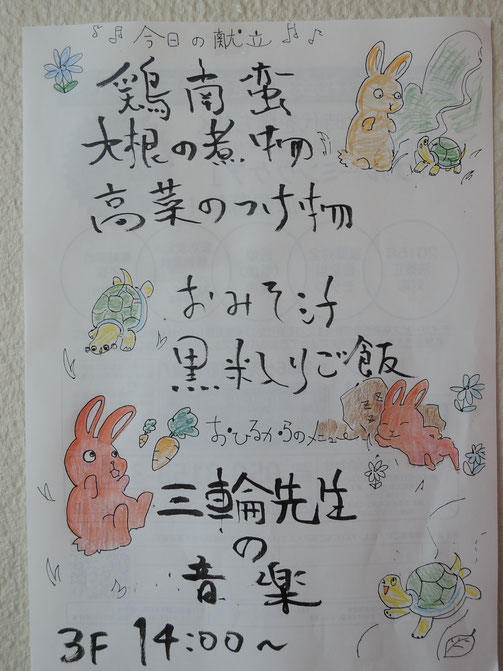 今日の献立
鶏南蛮
大根の煮物
高菜のつけ物
おみそ汁
黒米入りご飯
おひるからのメニュー
三輪先生
の
音楽
3F 14:00〜